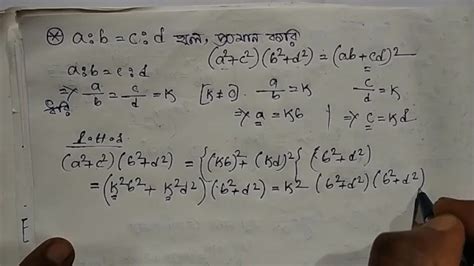 ⊛ a:b = c:d হলে, প্রমাণ করি
(a²+c²)(b²+d²) = (ab+cd)²
a:b = c:d
ধরি
⇒ a/b = c/d = K [K≠0] a/b = K c/d = K
⇒ a = Kb ⇒ c = Kd
L.H.S
(a²+c²)(b²+d²) = {(Kb)² + (Kd)²}(b²+d²)
= (K²b² + K²d²)(b²+d²) = K²(b²+d²)(b²+d²)